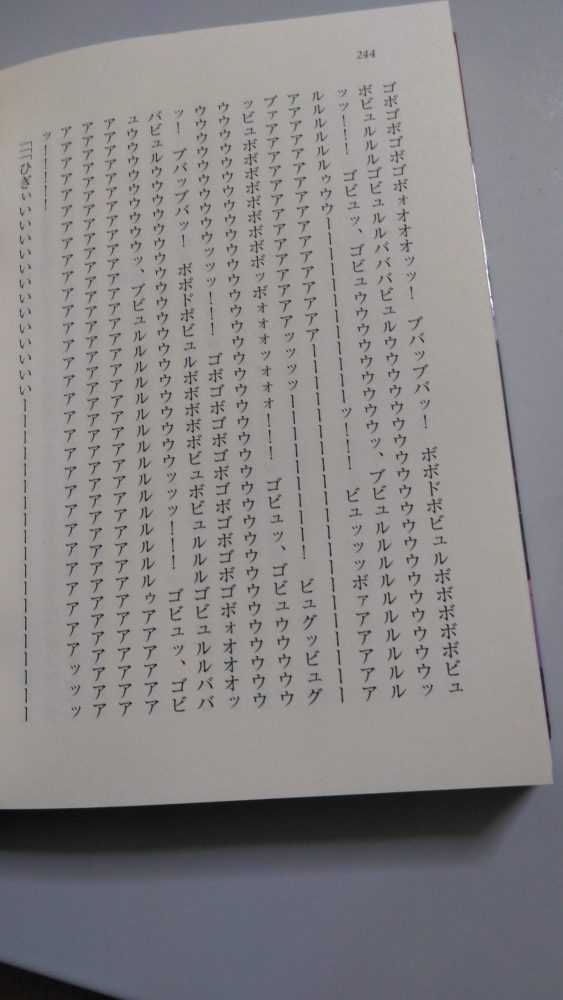 244
ゴボゴボゴボゴボォオオオッ!　ブバッブバッ!　ボボドボビュルボボボボボビュ
ボビュルルルゴビュルルバババビュルウウウウウウウウウウウウウウウウウウウッ
ッ!!!　ゴビュッ、ゴビュウウウウウウウウウウウッ、ブビュルルルルルルルルル
ルルルルルルゥウウーーーーーーーーーーーッ!!!　ビュッッッボァアアアアアア
アアアアアアアアアアアアアアアアーーーーーーーーーーーーーーーーーーーーー
ブァアアアアアアアアアアアアアアアッッッッーーーーーーーーー!　ビュグッビュグ
ッビュボボボボボボボボボッボォォォッォォォ!!!　ゴビュッ、ゴビュウウウウウ
ウウウウウウウウウウウウウウウウウウウウウウウウウウウウウウウウウウウウウ
ウウウウウウウウウウウッッッ!!!　ゴボゴボゴボゴボゴボゴボゴボゴボォオオオッ
ッ!　ブバップバッ!　ボボドボビュルボボボボボビュボビュルルルゴビュルルババ
バビュルウウウウウウウウウウウウウウウウウウウウウウウッッッ!!!　ゴビュッ、ゴビ
ュウウウウウウウウウッ、ブビュルルルルルルルルルルルルルルルルゥアアアアアア
アアアアアアアアアアアアアアアアアアアアアアアアアアアアアアアアアアアアア
アアアアアアアアアアアアアアアアアアアアアアアアアアアアアアアアアアアアア
アアアアアアアアアアアアアアアアアアアアアアアアアアアアアアアアアアッッッ
ッ!!!!!
「「「ひぎぃいいいいいいいいいいいいいいいーーーーーーーーーーーーーーーーーー